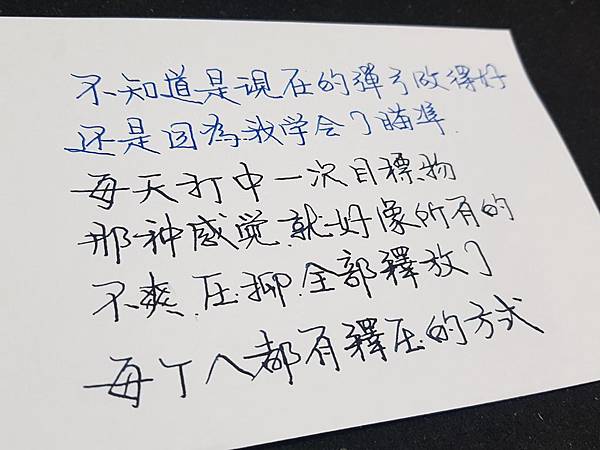 不知道是現在的彈弓改得好
还是因為我学会了瞄準.
每天打中一次目標物
那种感觉.就好像所有的
不爽.压抑.全部釋放了
每个人都有釋压的方式